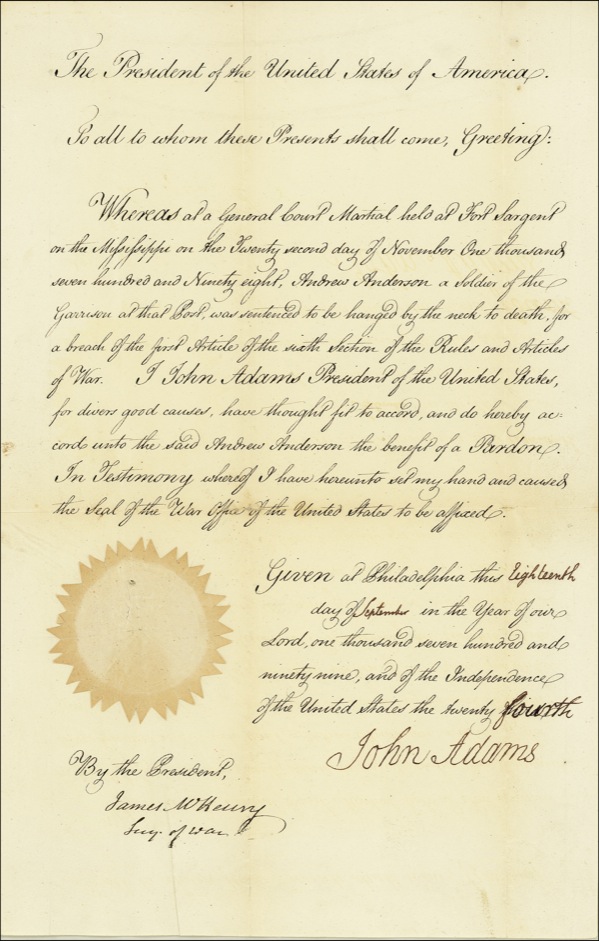 The President of the United States of America.
To all to whom these Presents shall come, Greeting:
Whereas at a General Court Martial held at Fort Sargent
on the Mississippi on the Twenty second day of November One thousand
seven hundred and Ninety eight, Andrew Anderson a Soldier of the
Garrison at that Post, was sentenced to be hanged by the neck to death, for
a breach of the first Article of the sixth Section of the Rules and Articles
of War. I John Adams President of the United States,
for divers good causes, have thought fit to accord, and do hereby ac=
cord unto the said Andrew Anderson the benefit of a Pardon.
In Testimony whereof I have hereunto set my hand and caused
the Seal of the War Office of the United States to be affixed.
Given at Philadelphia this Eighteenth
day of September in the Year of our
Lord, one thousand seven hundred and
ninety nine, and of the Independence
of the United States the twenty fourth
John Adams
By the President,
James McHenry
Secy. of War